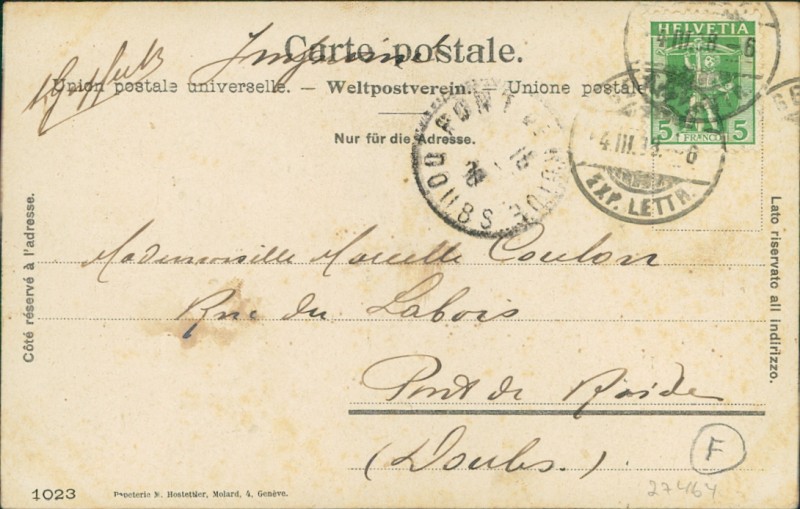 Carte postale.
Imprimé
Union postale universelle. — Weltpostverein. — Unione postale
Nur für die Adresse.
HELVETIA
5 FRANCO 5
4 III. -6
EXP. LETTR.
PONT DE ROIDE
DOUBS
Côté réservé à l'adresse.
Lato riservato all indirizzo.
Mademoiselle Marcelle Coulon
Rue du Labois
Pont de Roide
(Doubs.)
F
27464
1023
Papeterie N. Hostettler, Molard, 4, Genève.